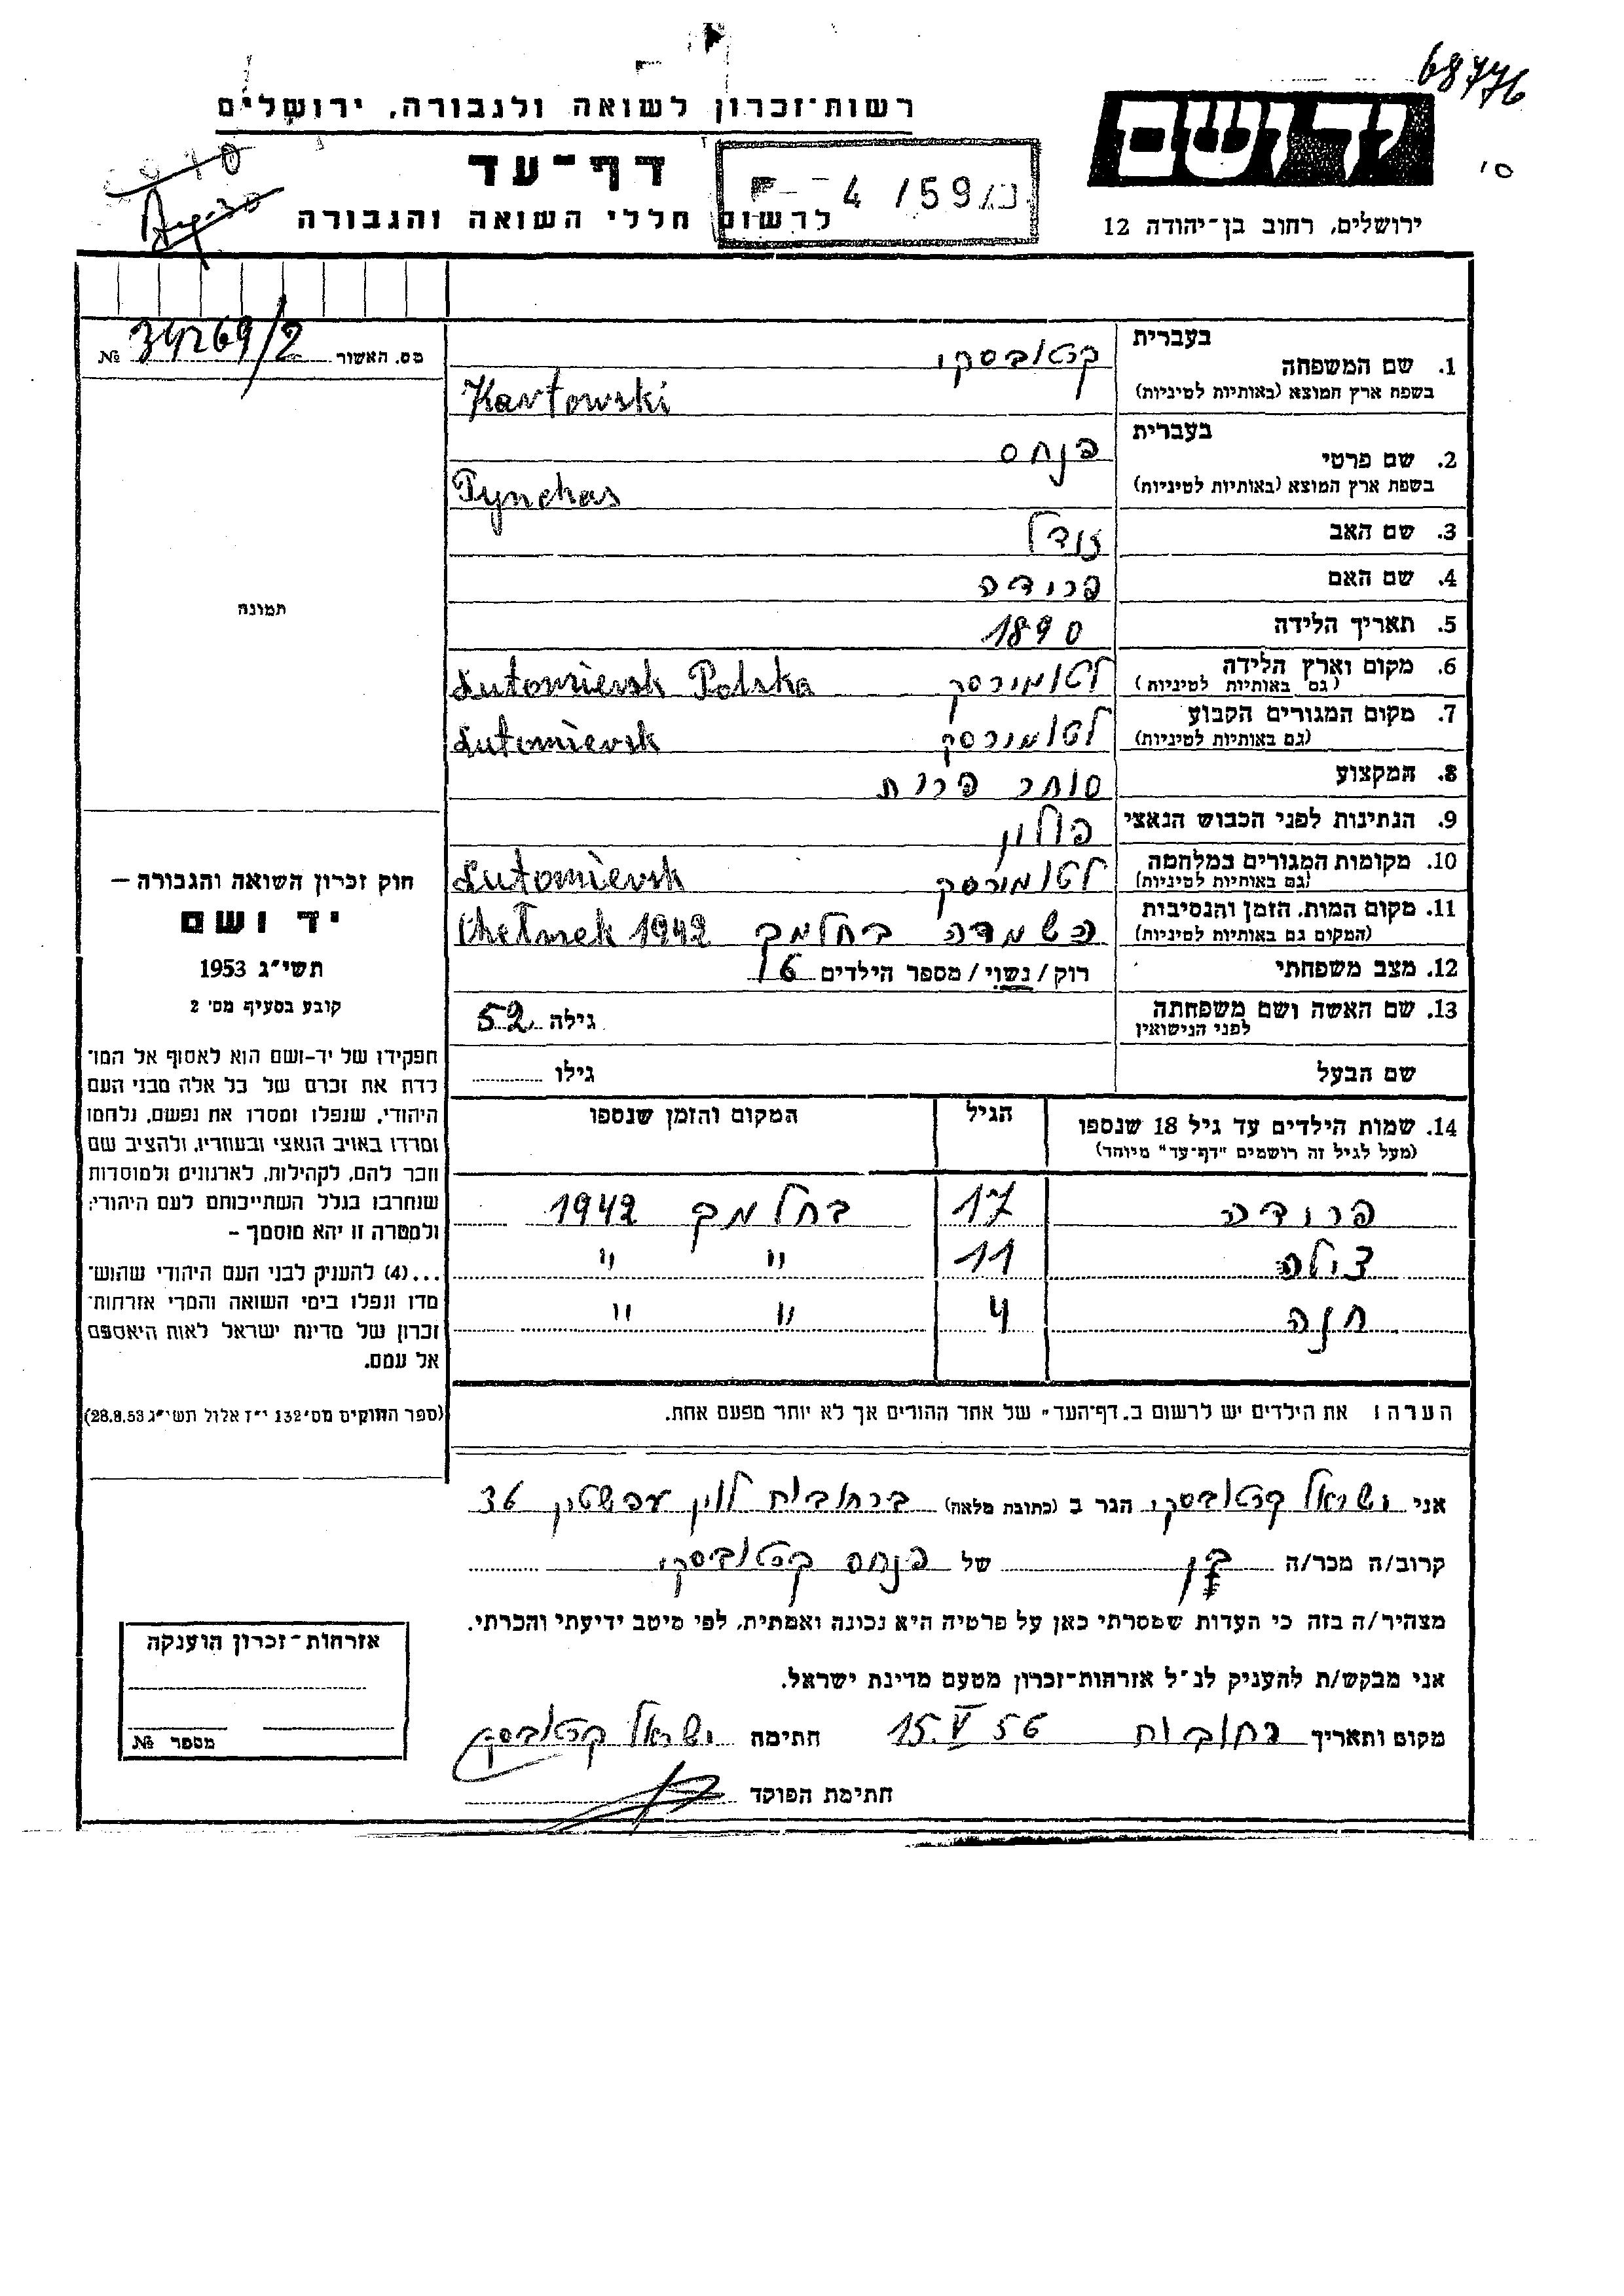 68776
רשות־זכרון לשואה ולגבורה, ירושלים
יד ושם
דף־עד
4 / 59
לרשום חללי השואה והגבורה
ירושלים, רחוב בן־יהודה 12
מס. האשור 34269/2 №
בעברית
1. שם המשפחה קרטובסקי
בשפת ארץ המוצא (באותיות לטיניות) Kartowski
בעברית
2. שם פרטי פנחס
בשפת ארץ המוצא (באותיות לטיניות) Pynchas
3. שם האב
4. שם האם פרודה
5. תאריך הלידה 1890
6. מקום וארץ הלידה לטומירסק Lutomiersk Polska
(גם באותיות לטיניות)
7. מקום המגורים הקבוע לטומירסק Lutomiersk
(גם באותיות לטיניות)
8. המקצוע סוחר פרות
9. הנתינות לפני הכבוש הנאצי פולין
10. מקומות המגורים במלחמה לטומירסק Lutomiersk
(גם באותיות לטיניות)
11. מקום המות, הזמן והנסיבות השמדה בחלמנ Chełmek 1942
(המקום גם באותיות לטיניות)
12. מצב משפחתי רוק/נשוי/מספר הילדים 6
13. שם האשה ושם משפחתה גילה 52
לפני הנישואין
שם הבעל גילו
14. שמות הילדים עד גיל 18 שנספו הגיל המקום והזמן שנספו
(מעל לגיל זה רושמים "דף־עד" מיוחד)
פרודה 17 בחלמנ 1942
צילה 11 " "
חנה 4 " "
הערה: את הילדים יש לרשום ב"דף־העד" של אחד ההורים אך לא יותר מפעם אחת.
תמונה
חוק זכרון השואה והגבורה –
יד ושם
תשי"ג 1953
קובע בסעיף מס' 2
תפקידו של יד-ושם הוא לאסוף אל המו־
לדת את זכרם של כל אלה מבני העם
היהודי, שנפלו ומסרו את נפשם, נלחמו
ומרדו באויב הנאצי ובעוזריו, ולהציב שם
וזכר להם, לקהילות, לארגונים ולמוסדות
שנחרבו בגלל השתייכותם לעם היהודי;
ולמטרה זו יהא מוסמך –
...(4) להעניק לבני העם היהודי שהוש־
מדו ונפלו בימי השואה והמרי אזרחות־
זכרון של מדינת ישראל לאות היאספם
אל עמם.
(ספר החוקים מס' 132 י"ז אלול תשי"ג 28.8.53)
אני ישראל קרטובסקי הגר ב (כתובת מלאה) ברחובות לוין עפשטין 36
קרוב/ה מכר/ה בן של פנחס קרטובסקי
מצהיר/ה בזה כי העדות שמסרתי כאן על פרטיה היא נכונה ואמתית, לפי מיטב ידיעתי והכרתי.
אני מבקש/ת להעניק לנ"ל אזרחות־זכרון מטעם מדינת ישראל.
מקום ותאריך רחובות 15.V 56 חתימה ישראל קרטובסקי
חתימת הפוקד
אזרחות־זכרון הוענקה
מספר №